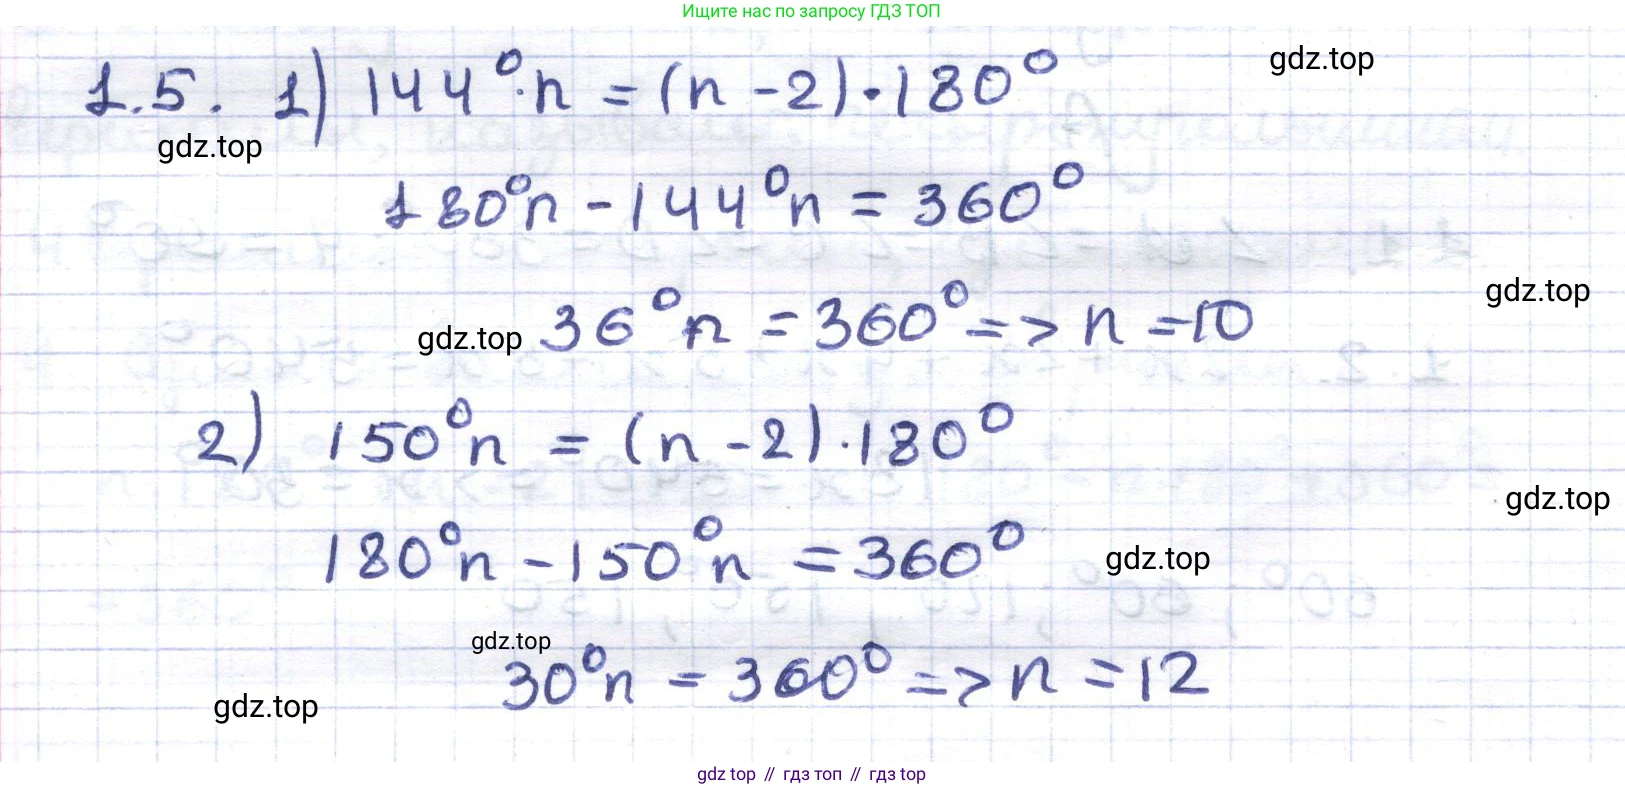 Ищите нас по запросу ГДЗ ТОП
1.5. 1) 144°·n = (n-2)·180°
gdz.top
gdz.top
180°n - 144°n = 360°
gdz.top
36°n = 360° => n = 10
gdz.top
2) 150°n = (n-2)·180°
gdz.top
180°n - 150°n = 360°
gdz.top
gdz.top
30°n = 360° => n = 12
gdz.top
gdz top // гдз топ // гдз top